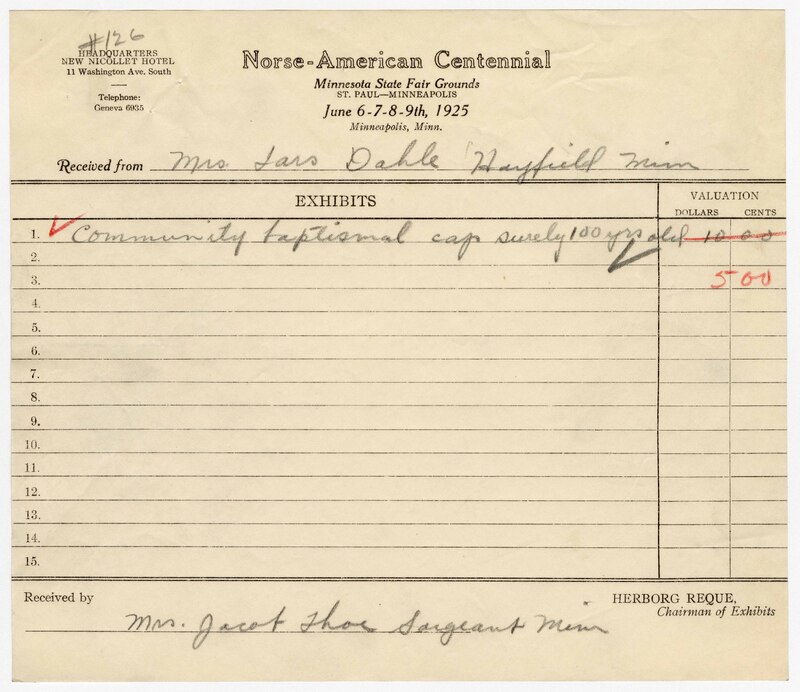 #126
HEADQUARTERS
NEW NICOLLET HOTEL
11 Washington Ave. South
Telephone:
Geneva 6935
Norse-American Centennial
Minnesota State Fair Grounds
ST. PAUL—MINNEAPOLIS
June 6-7-8-9th, 1925
Minneapolis, Minn.
Received from Mrs. Lars Dahle Hayfield Minn
EXHIBITS
VALUATION
DOLLARS CENTS
1. Community baptismal cap surely 100 yrs old 10 00
2.
3. 5 00
4.
5.
6.
7.
8.
9.
10.
11.
12.
13.
14.
15.
Received by
HERBORG REQUE,
Chairman of Exhibits
Mrs. Jacob Thoe Sargeant Minn